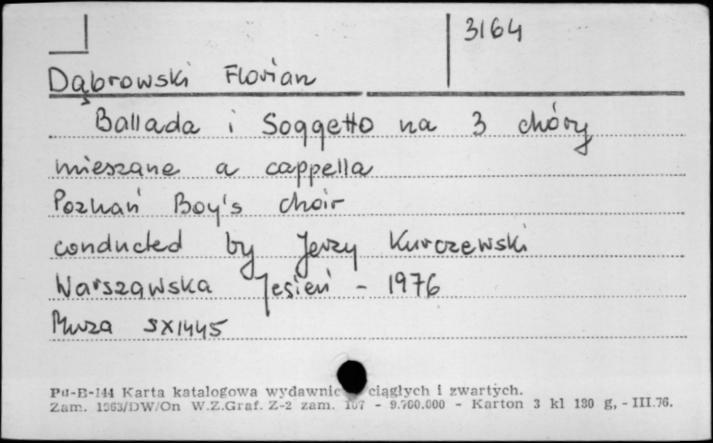 3164
Dąbrowski Florian
Ballada i Soggetto na 3 chóry
mieszane a cappella
Poznań Boy's choir
conducted by Jerzy Kurczewski
Warszawska Jesień - 1976
Muza SX1445
Pu-B-144 Karta katalogowa wydawnic ciągłych i zwartych.
Zam. 1363/DW/On W.Z.Graf. Z-2 zam. 107 - 9.700.000 - Karton 3 kl 180 g, - III.76.